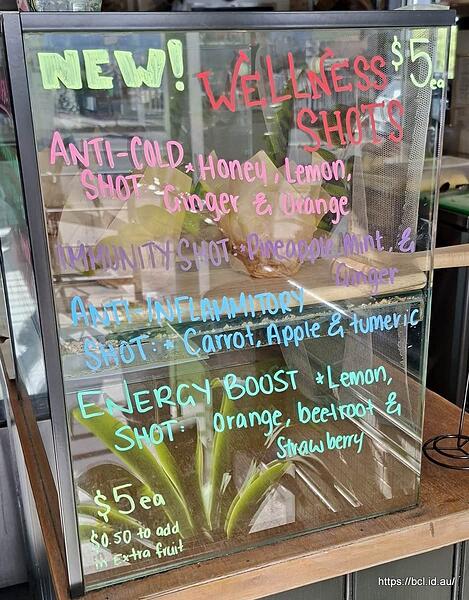 NEW!
WELLNESS
SHOTS
$5ea
ANTI-COLD * Honey, Lemon,
SHOT Ginger & Orange
IMMUNITY SHOT: * Pineapple, Mint, &
Ginger
ANTI-INFLAMMITORY
SHOT: * Carrot, Apple & tumeric
ENERGY BOOST * Lemon,
SHOT: orange, beetroot &
Strawberry
$5 ea
$0.50 to add
in Extra fruit
https://bcl.id.au/